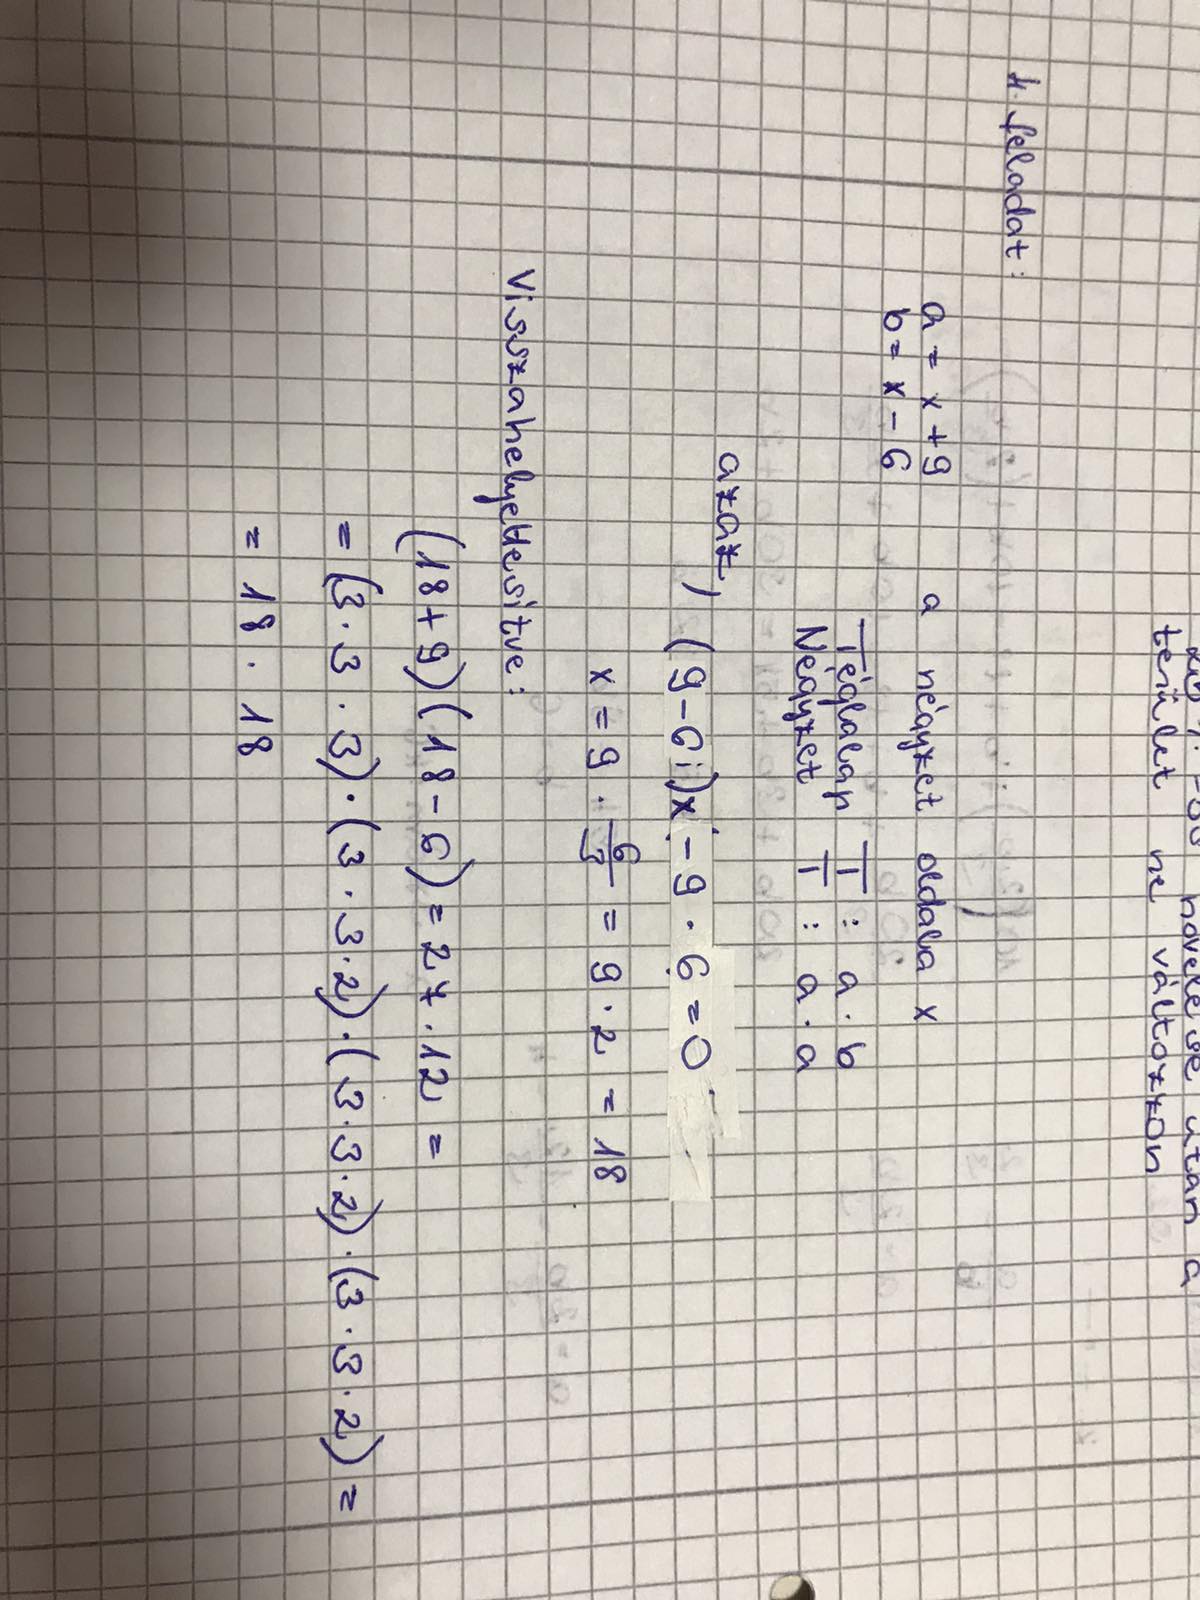 növelése után a
terület ne változzon
4. feladat:
a = x + 9 a négyzet oldala x
b = x - 6
Téglalap T : a · b
Négyzet T : a · a
azaz, (9-6i)x - 9 · 6 = 0
x = 9 · 6/3 = 9 · 2 = 18
Visszahelyettesitve:
(18+9)(18-6) = 27 · 12 =
= (3 · 3 · 3) · (3 · 3 · 2) · (3 · 3 · 2) · (3 · 3 · 2) =
= 18 · 18